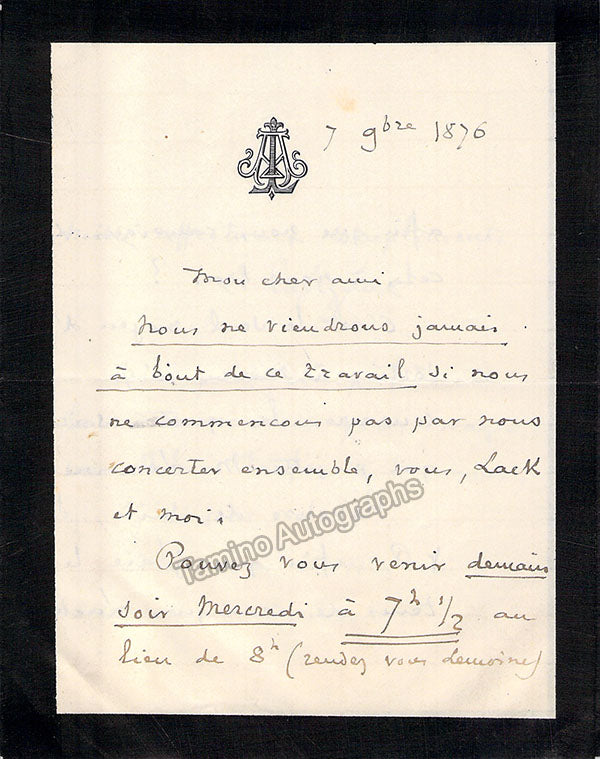 7 9bre 1876
Mon cher ami
Nous ne viendrons jamais
à bout de ce travail si nous
ne commencons pas par nous
concerter ensemble, vous, Lack
et moi.
Pouvez vous venir demain
soir Mercredi à 7h 1/2 au
lieu de 8h (rendez vous
Tamino Autographs